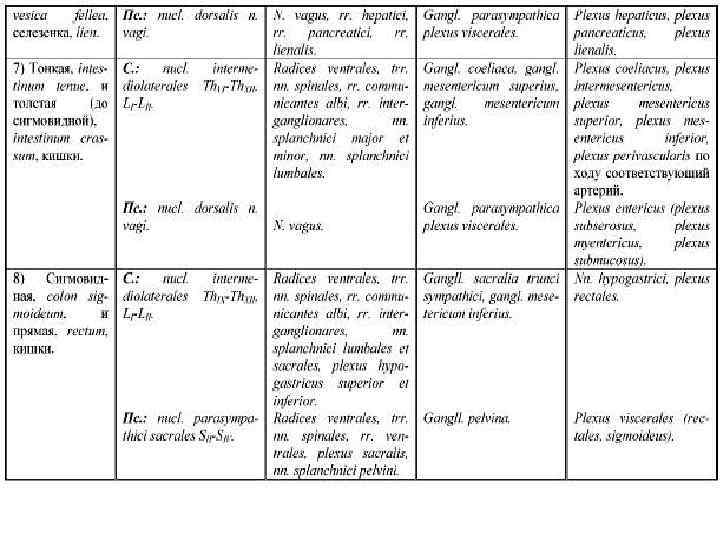 vesica fellea, селезенка, lien.
Пс.: nucl. dorsalis n. vagi.
N. vagus, rr. hepatici, rr. pancreatici, rr. lienalis.
Gangl. parasympathica plexus viscerales.
Plexus hepaticus, plexus pancreaticus, plexus lienalis.
7) Тонкая, intestinum tenue, и толстая (до сигмовидной), intestinum crassum, кишки.
С.: nucl. intermediolaterales ThVI-ThXII, LI-LII.
Radices ventrales, trr. nn. spinales, rr. communicantes albi, rr. interganglionares, nn. splanchnici major et minor, nn. splanchnici lumbales.
Gangl. coeliaca, gangl. mesentericum superius, gangl. mesentericum inferius.
Plexus coeliacus, plexus intermesentericus, plexus mesentericus superior, plexus mesentericus inferior, plexus perivascularis по ходу соответствующий артерий.
Пс.: nucl. dorsalis n. vagi.
N. vagus.
Gangl. parasympathica plexus viscerales.
Plexus entericus (plexus subserosus, plexus myentericus, plexus submucosus).
8) Сигмовидная, colon sigmoideum, и прямая, rectum, кишки.
С.: nucl. intermediolaterales ThIX-ThXII, LI-LII.
Radices ventrales, trr. nn. spinales, rr. communicantes albi, rr. interganglionares, nn. splanchnici lumbales et sacrales, plexus hypogastricus superior et inferior.
Gangll. sacralia trunci sympathici, gangl. mesetericum inferius.
Nn. hypogastrici, plexus rectales.
Пс.: nucl. parasympathici sacrales SII-SIV.
Radices ventrales, trr. nn. spinales, rr. ventrales, plexus sacralis, nn. splanchnici pelvini.
Gangll. pelvina.
Plexus viscerales (rectales, sigmoideus).